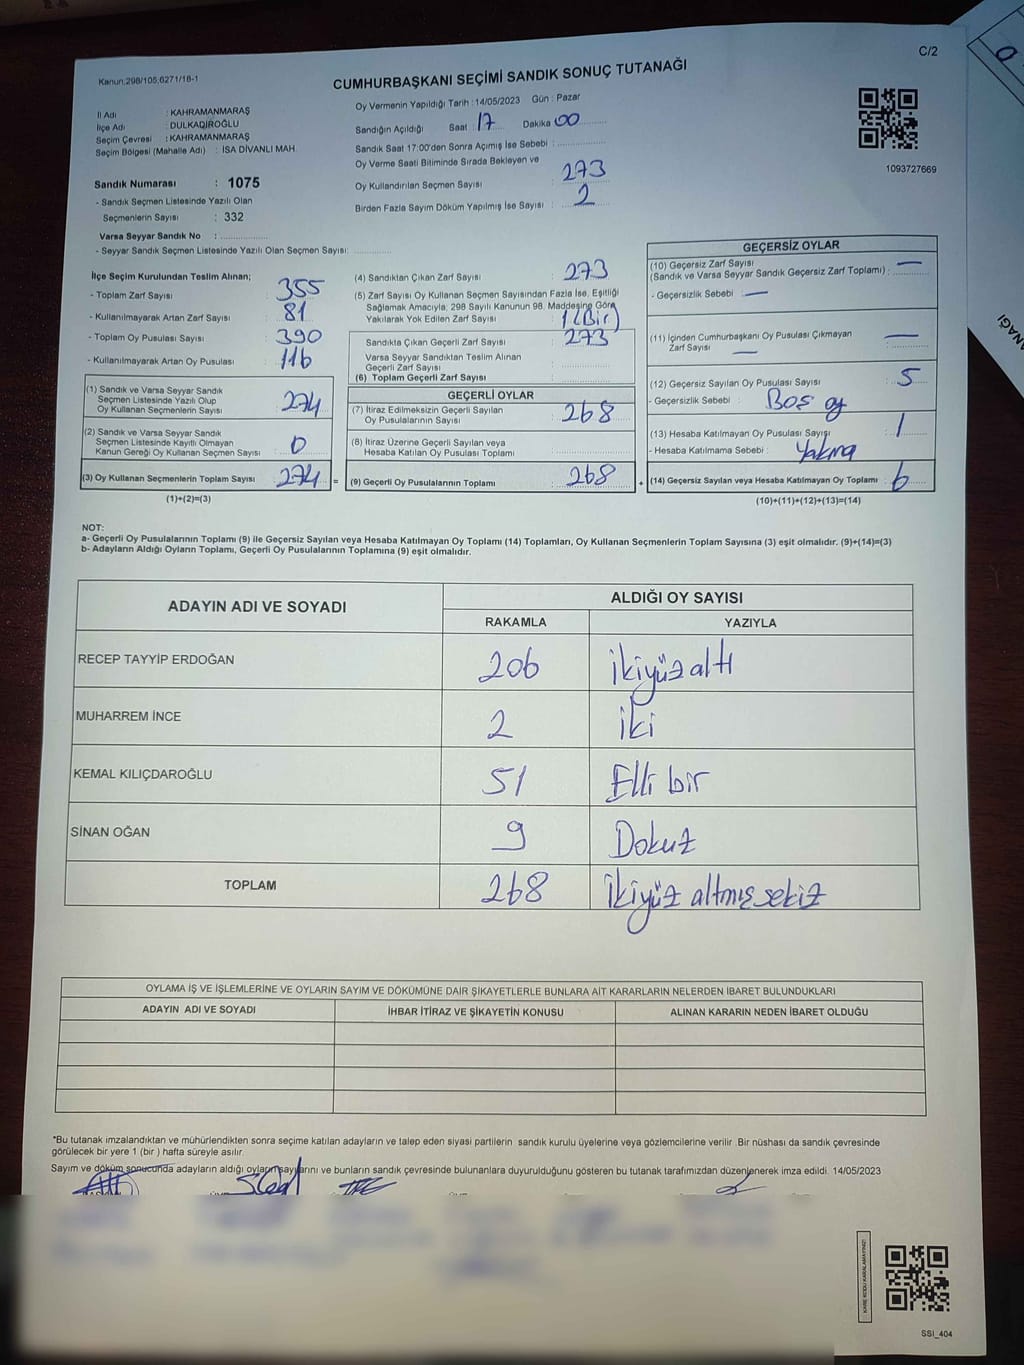 C/2
Kanun:298/105,6271/18-1
CUMHURBAŞKANI SEÇİMİ SANDIK SONUÇ TUTANAĞI
İl Adı : KAHRAMANMARAŞ
İlçe Adı : DULKADİROĞLU
Seçim Çevresi : KAHRAMANMARAŞ
Seçim Bölgesi (Mahalle Adı) : İSA DİVANLI MAH.
Sandık Numarası : 1075
- Sandık Seçmen Listesinde Yazılı Olan
Seçmenlerin Sayısı : 332
Varsa Seyyar Sandık No :
- Seyyar Sandık Seçmen Listesinde Yazılı Olan Seçmen Sayısı:
Oy Vermenin Yapıldığı Tarih : 14/05/2023 Gün : Pazar
Sandığın Açıldığı Saat : 17 Dakika 00
Sandık Saat 17:00'den Sonra Açımış İse Sebebi :
Oy Verme Saati Bitiminde Sırada Bekleyen ve
Oy Kullandırılan Seçmen Sayısı : 273
Birden Fazla Sayım Döküm Yapılmış İse Sayısı : 2
1093727669
İlçe Seçim Kurulundan Teslim Alınan;
- Toplam Zarf Sayısı : 355
- Kullanılmayarak Artan Zarf Sayısı : 81
- Toplam Oy Pusulası Sayısı : 390
- Kullanılmayarak Artan Oy Pusulası : 116
(1) Sandık ve Varsa Seyyar Sandık
Seçmen Listesinde Yazılı Olup
Oy Kullanan Seçmenlerin Sayısı : 274
(2) Sandık ve Varsa Seyyar Sandık
Seçmen Listesinde Kayıtlı Olmayan
Kanun Gereği Oy Kullanan Seçmen Sayısı : 0
(3) Oy Kullanan Seçmenlerin Toplam Sayısı : 274 =
(1)+(2)=(3)
(4) Sandıktan Çıkan Zarf Sayısı : 273
(5) Zarf Sayısı Oy Kullanan Seçmen Sayısından Fazla İse, Eşitliği
Sağlamak Amacıyla; 298 Sayılı Kanunun 98. Maddesine Göre
Yakılarak Yok Edilen Zarf Sayısı : 1 (Bir)
Sandıkta Çıkan Geçerli Zarf Sayısı : 273
Varsa Seyyar Sandıktan Teslim Alınan
Geçerli Zarf Sayısı :
(6) Toplam Geçerli Zarf Sayısı
GEÇERLİ OYLAR
(7) İtiraz Edilmeksizin Geçerli Sayılan
Oy Pusulalarının Sayısı : 268
(8) İtiraz Üzerine Geçerli Sayılan veya
Hesaba Katılan Oy Pusulası Toplamı :
(9) Geçerli Oy Pusulalarının Toplamı : 268 +
GEÇERSİZ OYLAR
(10) Geçersiz Zarf Sayısı
(Sandık ve Varsa Seyyar Sandık Geçersiz Zarf Toplamı) : —
- Geçersizlik Sebebi : —
(11) İçinden Cumhurbaşkanı Oy Pusulası Çıkmayan
Zarf Sayısı : —
(12) Geçersiz Sayılan Oy Pusulası Sayısı : 5
- Geçersizlik Sebebi : Boş oy
(13) Hesaba Katılmayan Oy Pusulası Sayısı : 1
- Hesaba Katılmama Sebebi : Yakma
(14) Geçersiz Sayılan veya Hesaba Katılmayan Oy Toplamı : 6
(10)+(11)+(12)+(13)=(14)
NOT:
a- Geçerli Oy Pusulalarının Toplamı (9) ile Geçersiz Sayılan veya Hesaba Katılmayan Oy Toplamı (14) Toplamları, Oy Kullanan Seçmenlerin Toplam Sayısına (3) eşit olmalıdır. (9)+(14)=(3)
b- Adayların Aldığı Oyların Toplamı, Geçerli Oy Pusulalarının Toplamına (9) eşit olmalıdır.
ADAYIN ADI VE SOYADI ALDIĞI OY SAYISI
RAKAMLA YAZIYLA
RECEP TAYYİP ERDOĞAN 206 İkiyüz altı
MUHARREM İNCE 2 İki
KEMAL KILIÇDAROĞLU 51 Elli bir
SİNAN OĞAN 9 Dokuz
TOPLAM 268 İkiyüz altmış sekiz
OYLAMA İŞ VE İŞLEMLERİNE VE OYLARIN SAYIM VE DÖKÜMÜNE DAİR ŞİKAYETLERLE BUNLARA AİT KARARLARIN NELERDEN İBARET BULUNDUKLARI
ADAYIN ADI VE SOYADI İHBAR İTİRAZ VE ŞİKAYETİN KONUSU ALINAN KARARIN NEDEN İBARET OLDUĞU
*Bu tutanak imzalandıktan ve mühürlendikten sonra seçime katılan adayların ve talep eden siyasi partilerin sandık kurulu üyelerine veya gözlemcilerine verilir. Bir nüshası da sandık çevresinde
görülecek bir yere 1 (bir) hafta süreyle asılır.
Sayım ve döküm sonucunda adayların aldığı oyların sayılarını ve bunların sandık çevresinde bulunanlara duyurulduğunu gösteren bu tutanak tarafımızdan düzenlenerek imza edildi. 14/05/2023
KARE KODU KARALAMAYINIZ!
SSI_404